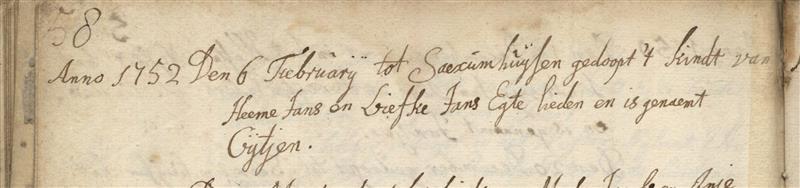 58
Anno 1752 Den 6 Februarÿ tot Saaxúmhúÿsen gedoopt 't kindt van
Heeme Jans en Liefke Jans Egte lieden en is genaemt
Gÿtjen.